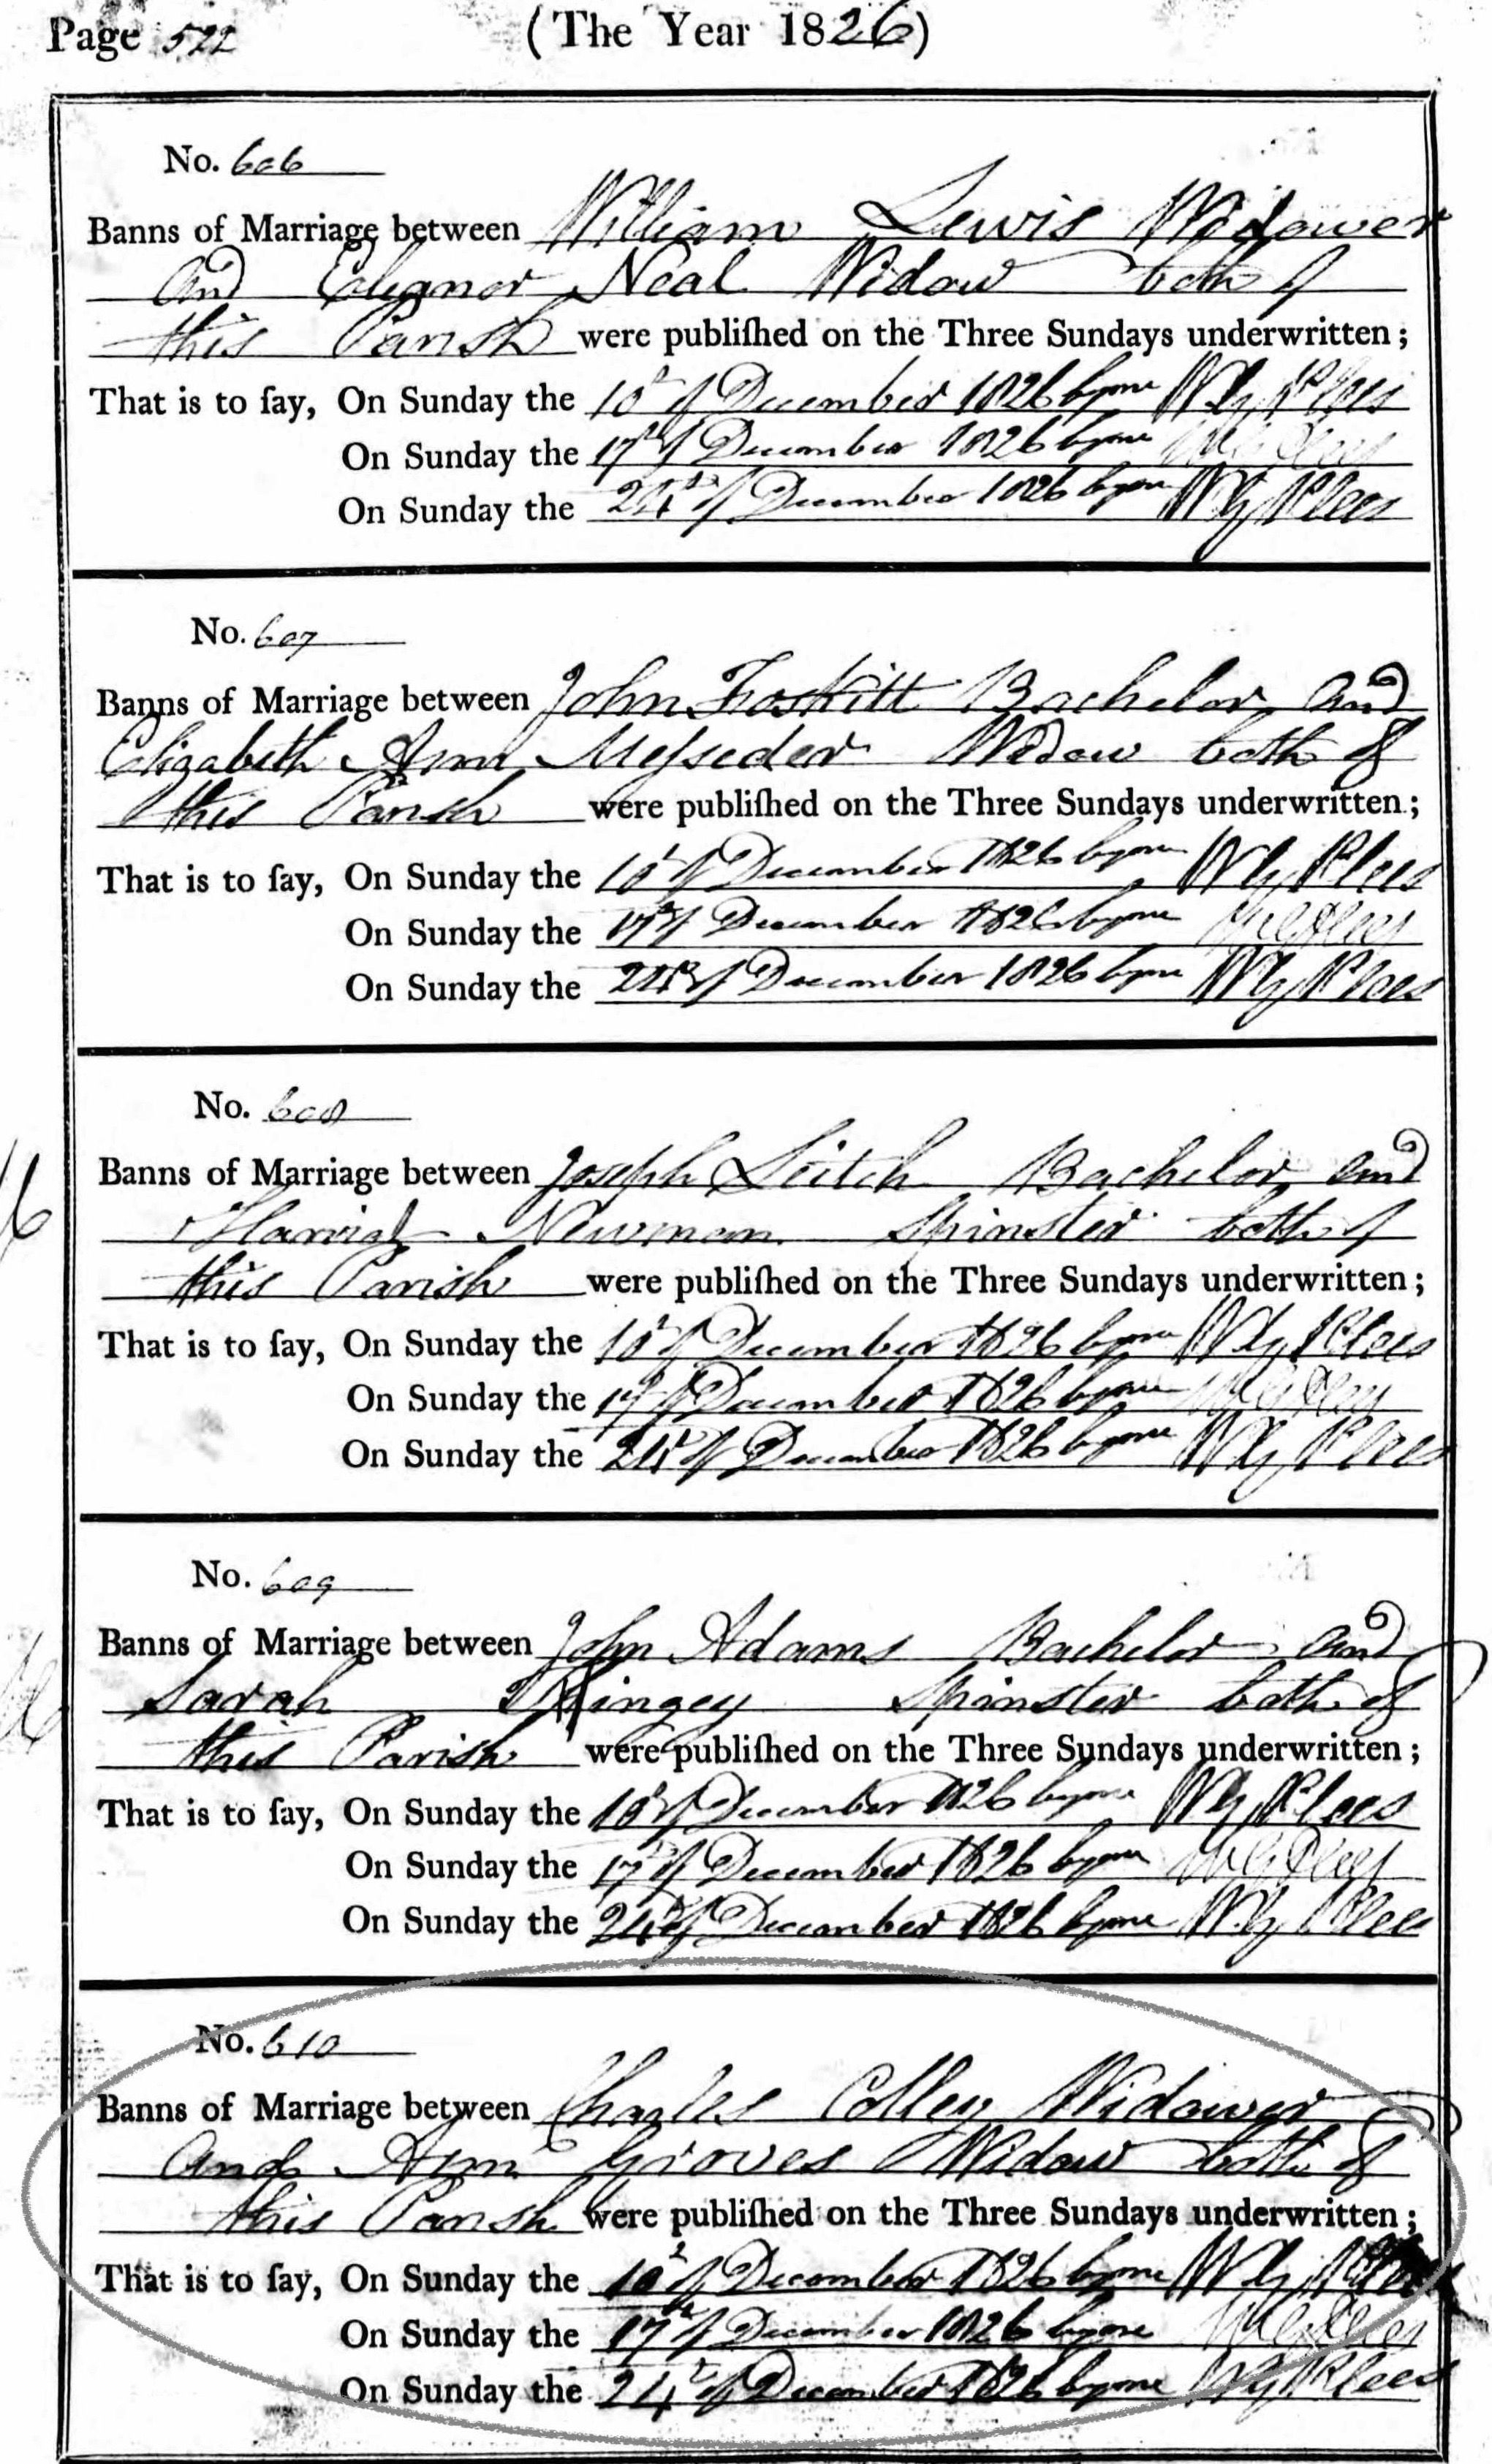 Page 522 (The Year 1826)
No. 606
Banns of Marriage between William Lewis Widower
and Eleanor Neal Widow both of
this Parish were publiſhed on the Three Sundays underwritten;
That is to ſay, On Sunday the 10th of December 1826 by me
On Sunday the 17th of December 1826 by me
On Sunday the 24th of December 1826 by me
No. 607
Banns of Marriage between John Foskitt Bachelor and
Elizabeth Ann Widow both of
this Parish were publiſhed on the Three Sundays underwritten;
That is to ſay, On Sunday the 10th of December 1826 by me
On Sunday the 17th of December 1826 by me
On Sunday the 24th of December 1826 by me
No. 608
Banns of Marriage between Joseph Leitch Bachelor and
Harriat Newman Spinster both of
this Parish were publiſhed on the Three Sundays underwritten;
That is to ſay, On Sunday the 10th of December 1826 by me
On Sunday the 17th of December 1826 by me
On Sunday the 24th of December 1826 by me
No. 609
Banns of Marriage between John Adams Bachelor and
Sarah Spinster both of
this Parish were publiſhed on the Three Sundays underwritten;
That is to ſay, On Sunday the 10th of December 1826 by me
On Sunday the 17th of December 1826 by me
On Sunday the 24th of December 1826 by me
No. 610
Banns of Marriage between Charles Colley Widower
and Ann Groves Widow both of
this Parish were publiſhed on the Three Sundays underwritten;
That is to ſay, On Sunday the 10th of December 1826 by me
On Sunday the 17th of December 1826 by me
On Sunday the 24th of December 1826 by me